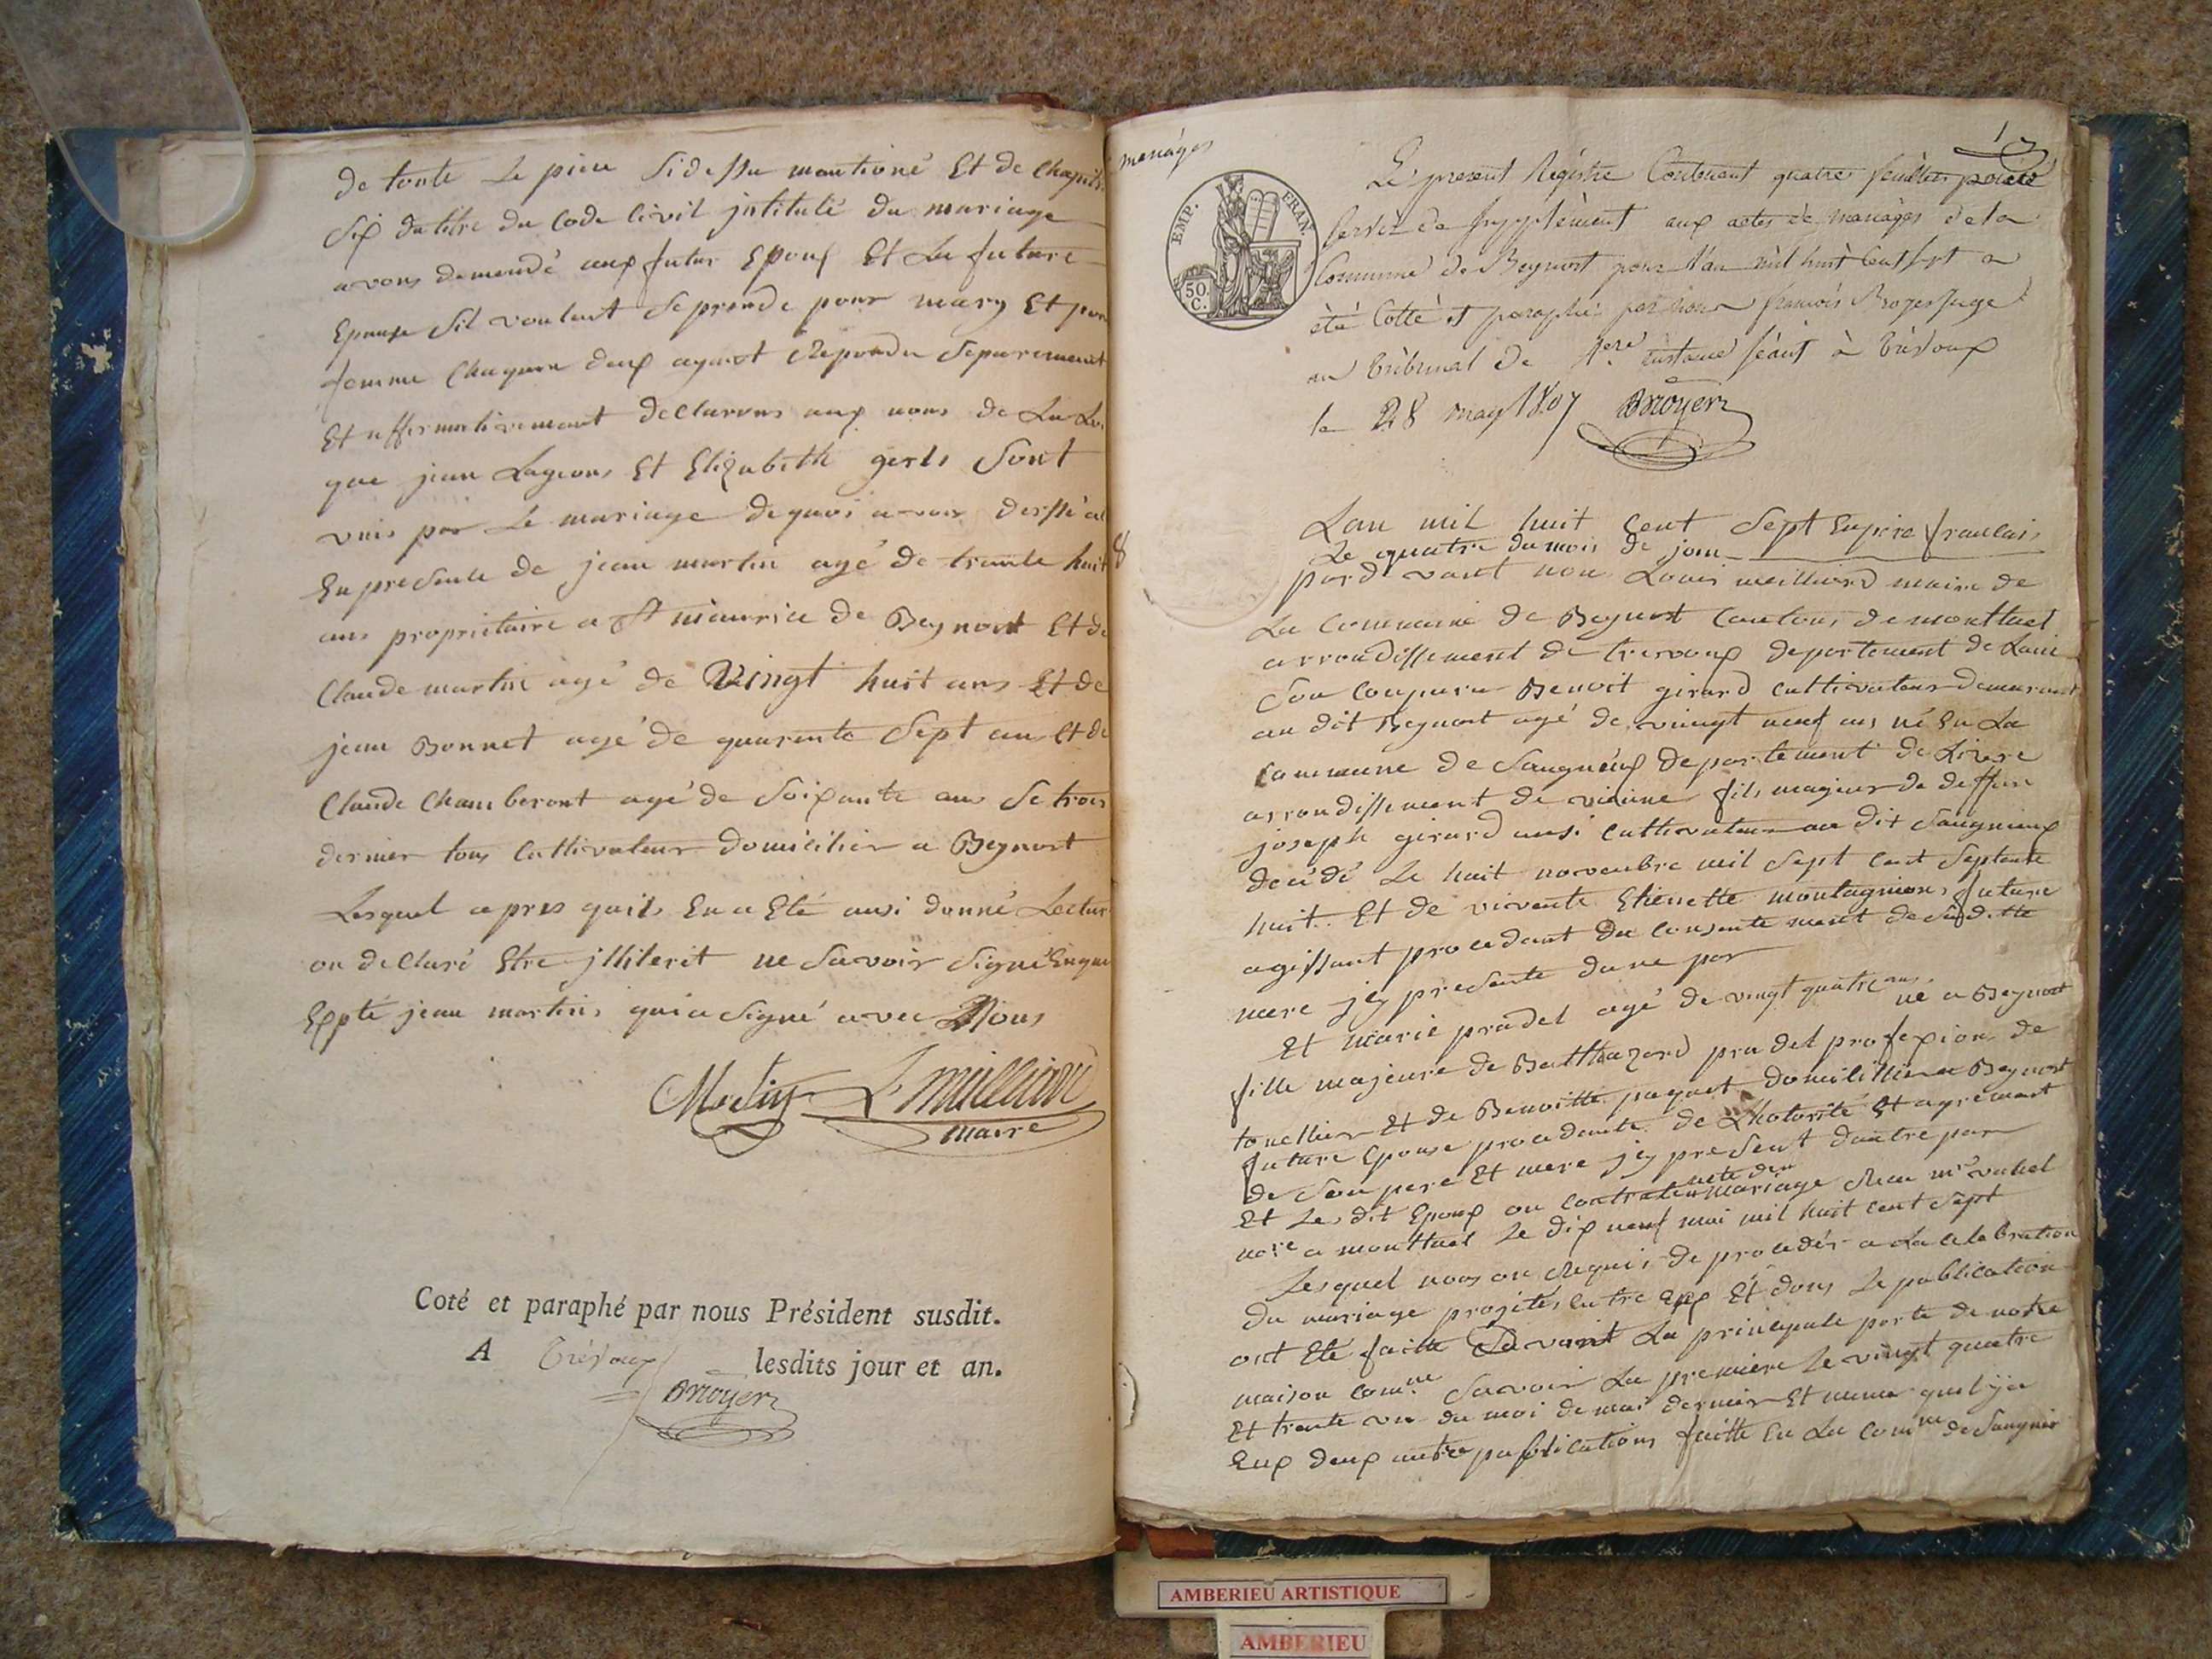 de toute Le piece Sidessu mantioné Et de Chapitre
Six du titre du Code Civil jntitulé du mariage
avons demendé aux futur Epoux Et La future
Epouse Sil voulent Se prende pour mary Et pour
femme Chaquun deux ayant Repondu Separement
Et affirmativement declarons aux nom de La Loi
que jean Lageons Et Elizabeth gerls Sont
unis par Le mariage de quoi avons dressé a
En presente de jean martin agé de trante huit
ans propriétaire a St maurice de Beynost Et de
Claude martin agé de Vingt huit ans Et de
jean Bonnet agé de quarente Sept ans Et de
Claude Chamberont agé de Soixante ans Se trois
dernier tous Cultivateur domicilier a Beynost
Lesquel apres quils En a Eté ausi donné Lectur
on declaré Etre jlliterit ne Savoir Signé Enque
Expté jean martin, qui a Signé avec Nous
Martin L Milliard
maire
Coté et paraphé par nous Président susdit.
A Trévoux lesdits jour et an.
Broyer
mariages
EMP. FRAN.
50. C.
Le present Régistre Contenant quatre feuillets
Servir de Supplément aux actes de mariages de la
Commune de Beynost pour l'an mil huit Cent sept a
été Cotté et paraphé par nous francois Broyer Juge
au tribunal de 1ere instance séant à Trévoux
le 28 may 1807 Broyer
8
Lan mil huit Cent Sept Enpire francais
Le quatre du mois de join
pard vant nou Louis meilliard maire de
La Commune de Beynost Cantons de montluel
arrondissement de trevoux departement de Lain
Son Conparu Benoit girard Cultivateur demeurant
au dit Beynost agé de vingt neuf ans né En La
Commune de Saugnieux departement de Lizere
arrondissement de vienne fils majeur de deffun
joseph girard ausi Cultivateur au dit Saugnieux
decédé Le huit novembre mil Sept Cent Septente
huit Et de vivente Etienette montagnions, future
agissant procedant du Consentement de Sa ditte
mere jcy presente dune par
Et marie pradel agé de vingt quatre ans. né a Beynost
fille majeure de Balthazard pradel profexion de
tonellier Et de Benoitte paquet domicillier a Beynost
future Epouse procedante de Lhotorité Et agrement
de Son pere Et mere jcy present dautre par
Et Les dit Epoux on Contrat mariage Reçu me
nore a montluel Le dix neuf mai mil huit cent Sept
Lesquel nous on Requis de procedér a La Celebration
du mariage projétés Entre Eux Et dons Le publication
ont Eté faitte Devant La principale porte de notre
maison Comne Savoir La premiere Le vingt quatre
Et trente un du moi de mai dernier Et meme quil ya
Eux deux autre publications faitte En La Comne de Saugnie
AMBERIEU ARTISTIQUE
AMBERIEU